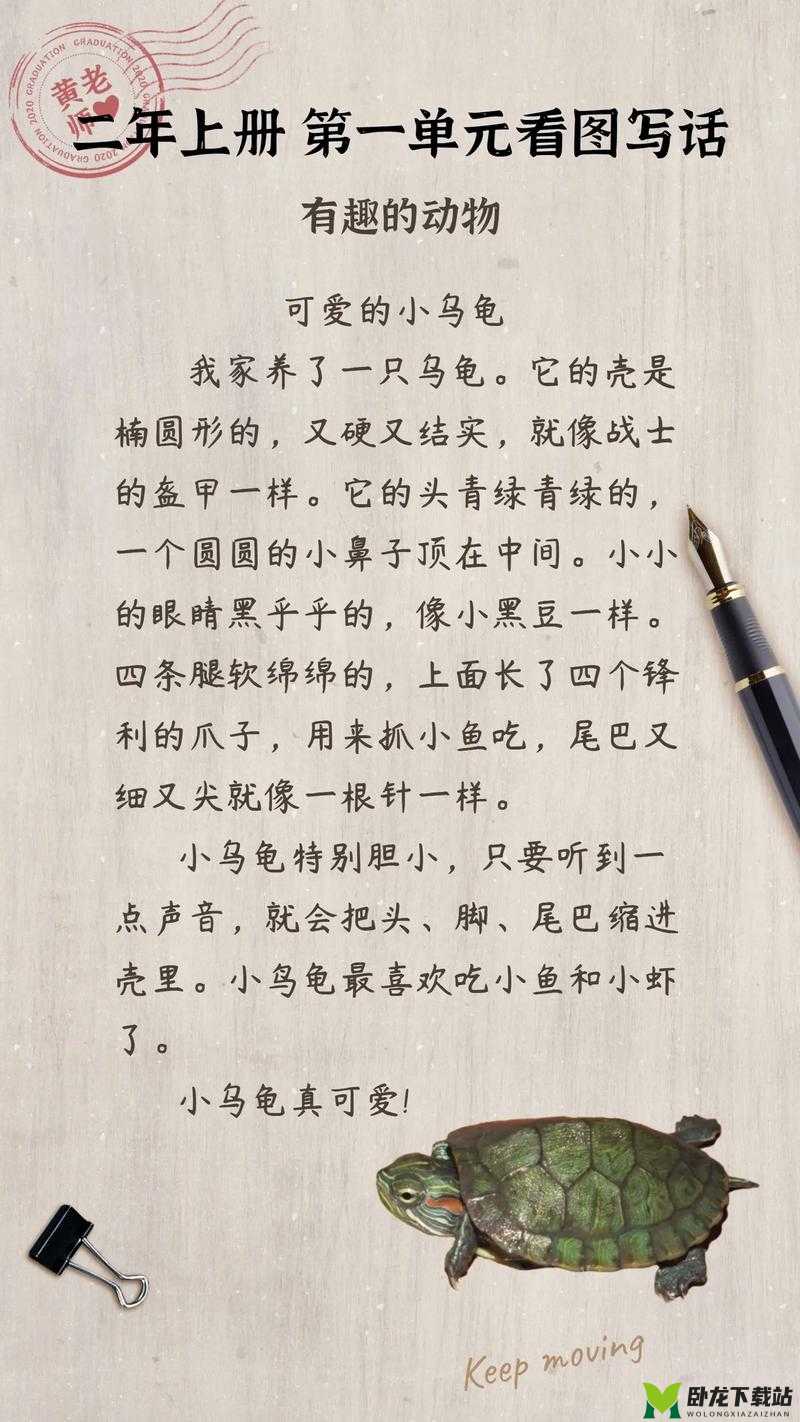 黄老师
GRADUATION 2020 GRADUATION 2020 GRADUATION 2020
二年上册 第一单元看图写话
有趣的动物
可爱的小乌龟
我家养了一只乌龟。它的壳是
楕圆形的，又硬又结实，就像战士
的盔甲一样。它的头青绿青绿的，
一个圆圆的小鼻子顶在中间。小小
的眼睛黑乎乎的，像小黑豆一样。
四条腿软绵绵的，上面长了四个锋
利的爪子，用来抓小鱼吃，尾巴又
细又尖就像一根针一样。
小乌龟特别胆小，只要听到一
点声音，就会把头、脚、尾巴缩进
壳里。小鸟龟最喜欢吃小鱼和小虾
了。
小乌龟真可爱!
Keep moving
卧龙下载站
WOLONGXIAZAIZHAN